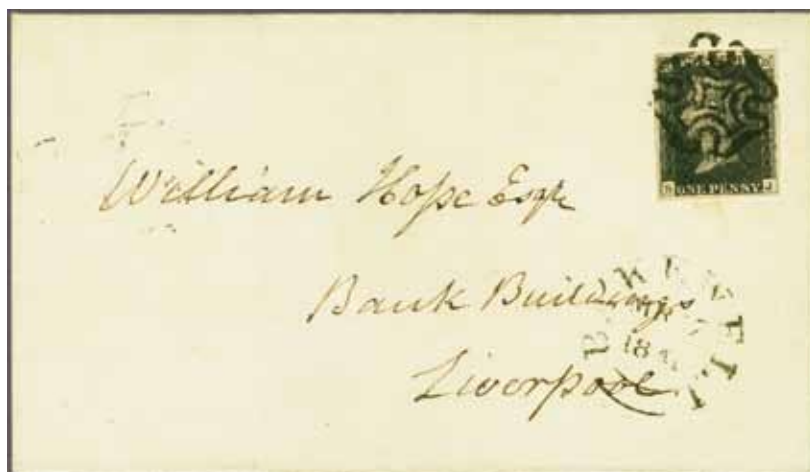 ONE PENNY
J
William Hope Esqr
Bank Buildings
Liverpool
184